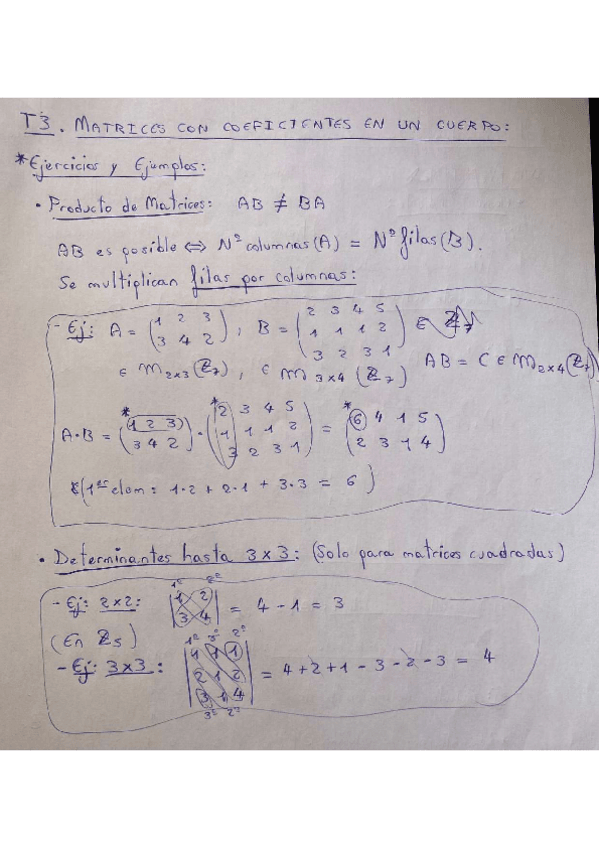 T3. MATRICES CON COEFICIENTES EN UN CUERPO:
*Ejercicios y Ejemplos:
• Producto de Matrices: AB ≠ BA
AB es posible ⇔ Nº columnas(A) = Nº filas(B).
Se multiplican filas por columnas:
- Ej: A = (1 2 3 / 3 4 2) ; B = (2 3 4 5 / 1 1 1 2 / 3 2 3 1) ∈
∈ M2x3(Z7), ∈ M3x4(Z7) AB = C ∈ M2x4(Z7)
A·B = *(1 2 3 / 3 4 2) · *(2 3 4 5 / 1 1 1 2 / 3 2 3 1) = *(6 4 1 5 / 2 3 1 4)
*(1er elem: 1·2 + 2·1 + 3·3 = 6)
• Determinantes hasta 3x3: (Solo para matrices cuadradas)
1º 2º
- Ej: 2x2: |1 2 / 3 4| = 4 - 1 = 3
(En Z5)
1º 3º 2º
- Ej: 3x3: |1 1 1 / 2 1 2 / 3 1 4| = 4 + 2 + 1 - 3 - 2 - 3 = 4
3º 2º